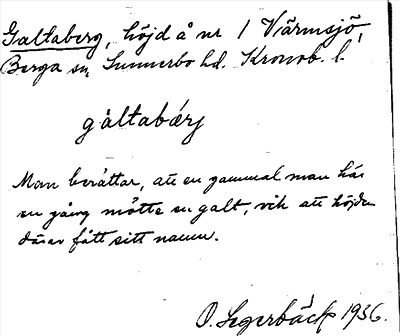 Galtaberg, höjd å nr 1 Värmsjö,
Berga sn, Sunnerbo hd. Kronob. l.
gàltabæ̀rj
Man berättar, att en gammal man här
en gång mötte en galt, vik att höjden
därav fått sitt namn.
O. Segerbäck 1936.